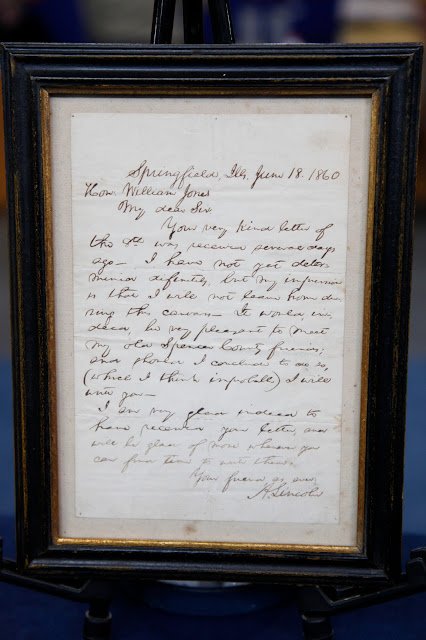 Springfield, Ills, June 18. 1860
Hon. William Jones
My dear Sir
Your very kind letter of
the 9th was received several days
ago— I have not yet deter-
mined definitely, but my impression
is that I will not leave home du-
ring this canvass— It would, in-
deed, be very pleasant to meet
my old Spencer County friends;
and should I conclude to do so,
(which I think improbable) I will
write you—
I am very glad indeed to
have received your letter, and
will be glad of more whenever you
can find time to write them.
Your friend as ever
A. Lincoln